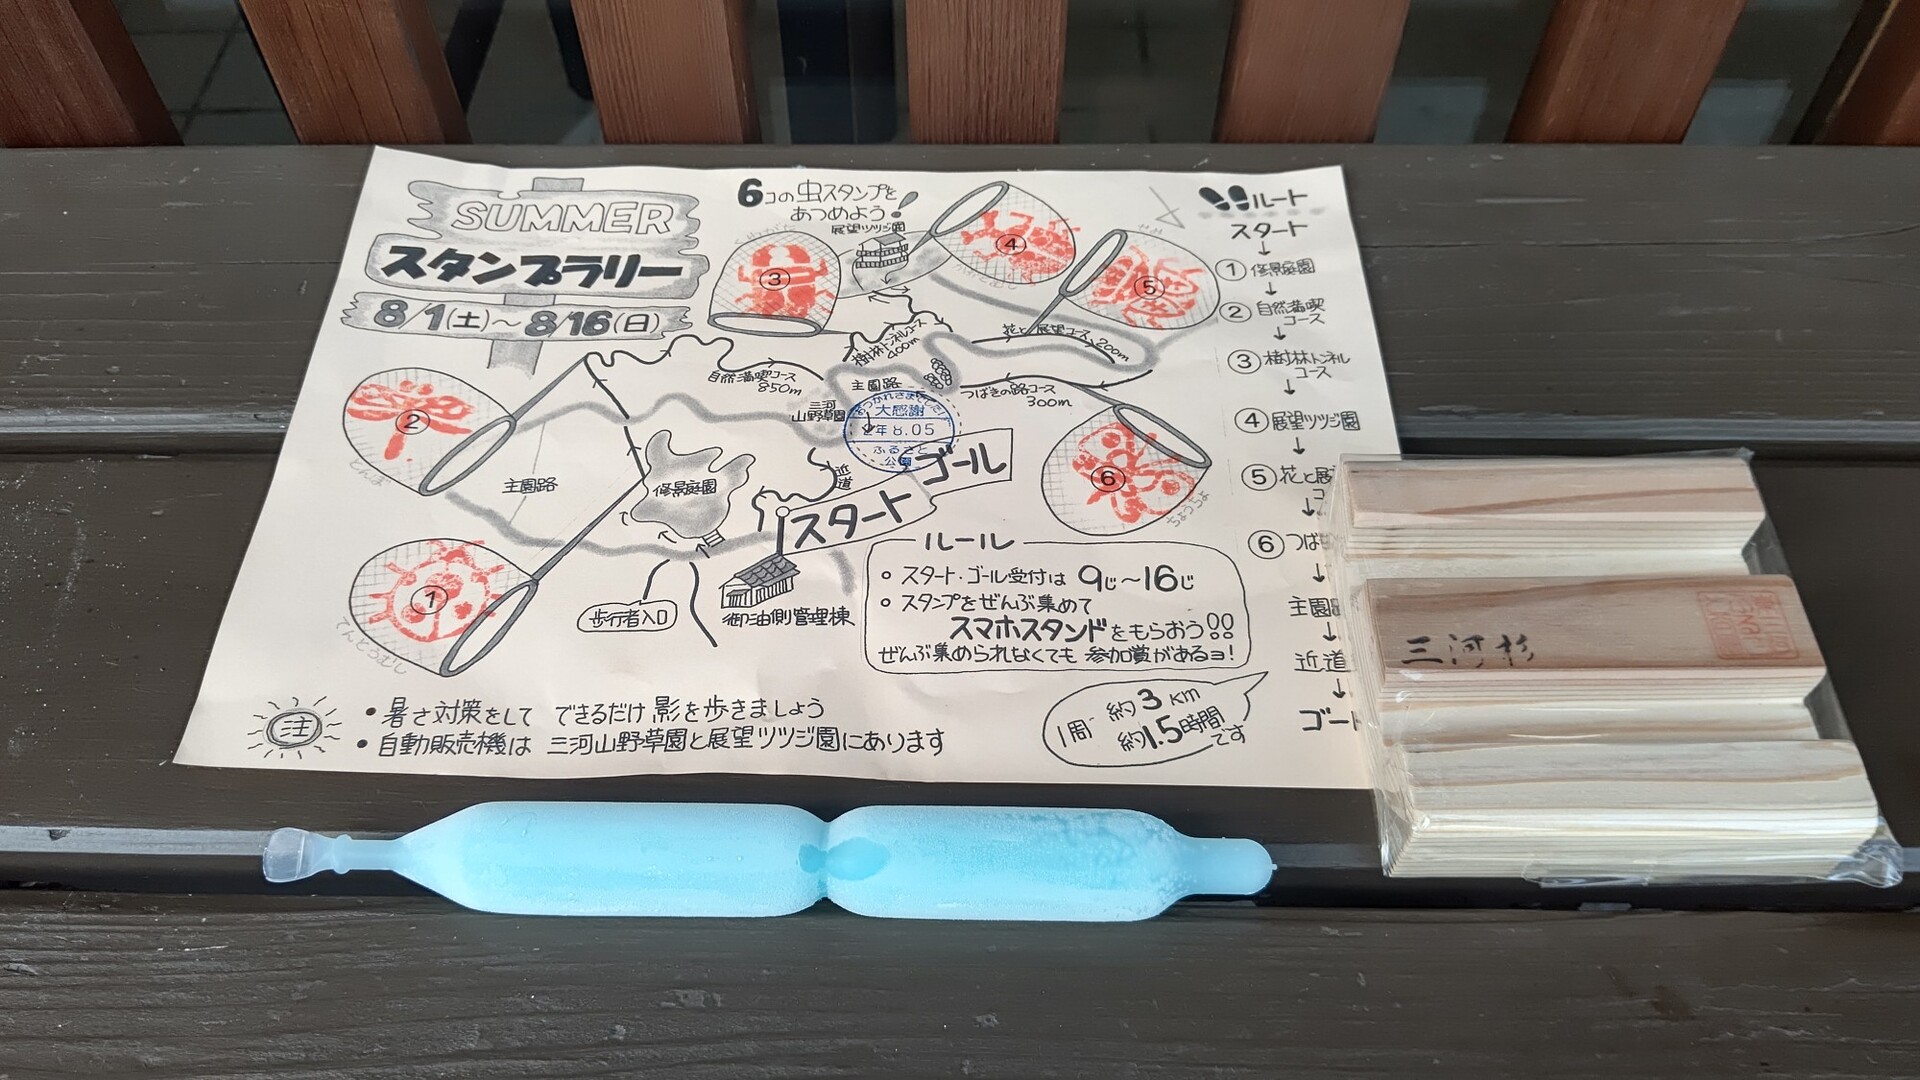 SUMMER
スタンプラリー
8/1(土)～8/16(日)
6コの虫スタンプを
あつめよう!
展望ツツジ園
③
④
⑤
樹林トンネルコース
400m
花と展望コース
200m
自然満喫コース
850m
主園路
つばきの路コース
300m
三河
山野草園
おつかれさまでした
大感謝
2年 8.05
ふるさと
公園
②
とんぼ
主園路
修景庭園
近道
スタート
ゴール
⑥
ちょうちょ
①
てんとうむし
歩行者入口
御油側管理棟
ルール
○ スタート・ゴール受付は 9じ～16じ
○ スタンプをぜんぶ集めて
スマホスタンドをもらおう!!
ぜんぶ集められなくても 参加賞があるヨ!
注
• 暑さ対策をして できるだけ 影を歩きましょう
• 自動販売機は 三河山野草園と展望ツツジ園にあります
1周 約3km
約1.5時間
です
ルート
スタート
↓
① 修景庭園
↓
② 自然満喫
コース
↓
③ 樹林トンネル
コース
↓
④ 展望ツツジ園
↓
⑤ 花と展
↓
⑥ つば
↓
主園
↓
近道
↓
ゴー
三河杉